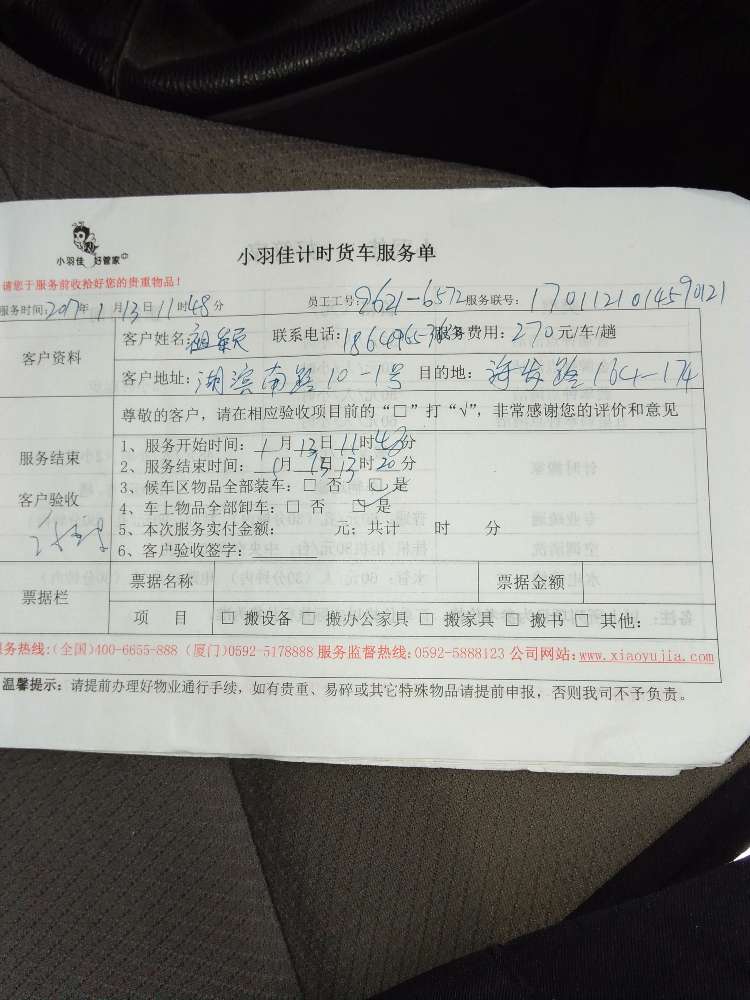 小羽佳 好管家
小羽佳计时货车服务单
请您于服务前收拾好您的贵重物品!
服务时间:2017年1月13日11时48分 员工工号:9621-6572 服务联号:1701121014590121
客户资料
客户姓名: 联系电话: 服务费用:270元/车/趟
客户地址:湖滨南路10-1号 目的地: 164-174
尊敬的客户,请在相应验收项目前的“□”打“√”,非常感谢您的评价和意见
服务结束
客户验收
1、服务开始时间:1月13日11时48分
2、服务结束时间:1月13日13时20分
3、候车区物品全部装车:□ 否 □ 是
4、车上物品全部卸车:□ 否 □ 是
5、本次服务实付金额: 元;共计 时 分
6、客户验收签字:
票据栏
票据名称 票据金额
项 目 □ 搬设备 □ 搬办公家具 □ 搬家具 □ 搬书 □ 其他:
服务热线:(全国)400-6655-888 (厦门)0592-5178888 服务监督热线:0592-5888123 公司网站:www.xiaoyujia.com
温馨提示:请提前办理好物业通行手续,如有贵重、易碎或其它特殊物品请提前申报,否则我司不予负责。